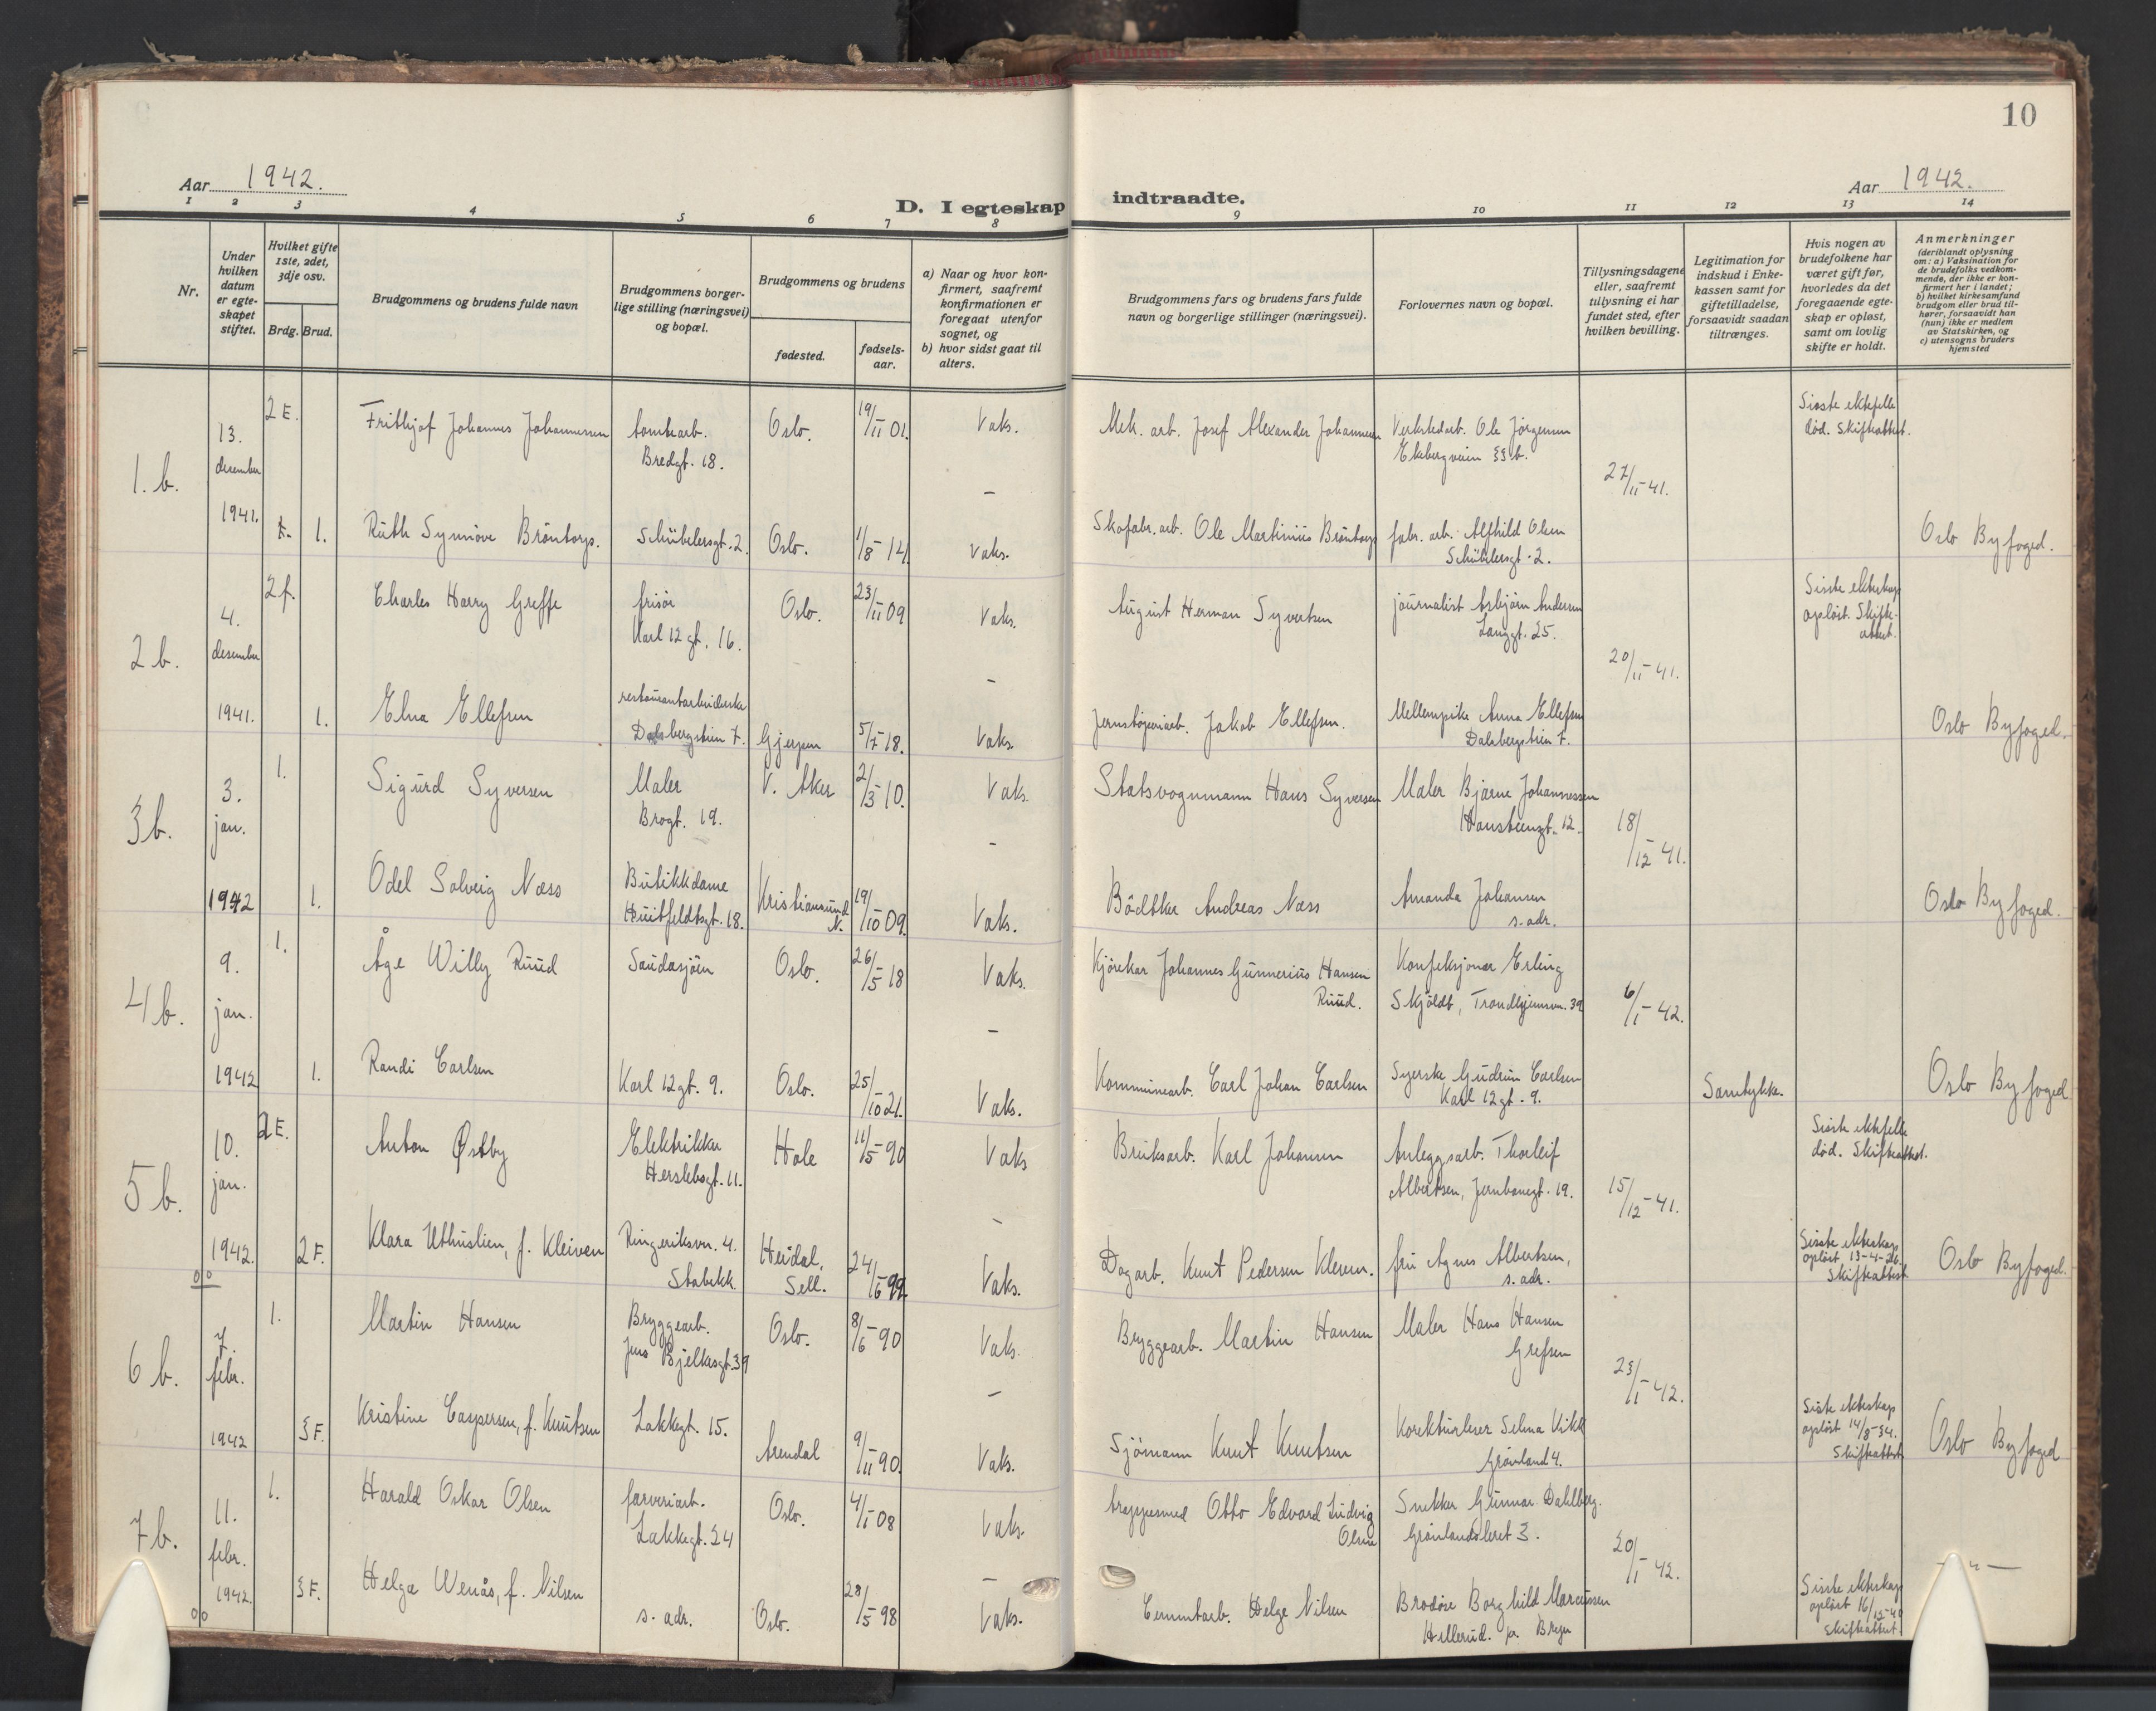 10
Aar 1942.
D. I egteskap indtraadte.
Aar 1942.
1 2 3 4 5 6 7 8 9 10 11 12 13 14
Nr.
Under hvilken datum er egte-skapet stiftet.
Hvilket gifte 1ste, 2det, 3dje osv.
Brdg. Brud.
Brudgommens og brudens fulde navn
Brudgommens borger-
lige stilling (næringsvei)
og bopæl.
Brudgommens og brudens
fødested.
fødsels-
aar.
a) Naar og hvor kon-
firmert, saafremt
konfirmationen er
foregaat utenfor
sognet, og
b) hvor sidst gaat til
alters.
Brudgommens fars og brudens fars fulde
navn og borgerlige stillinger (næringsvei).
Forlovernes navn og bopæl.
Tillysningsdagene
eller, saafremt
tillysning ei har
fundet sted, efter
hvilken bevilling.
Legitimation for
indskud i Enke-
kassen samt for
giftetilladelse,
forsaavidt saadan
tiltrænges.
Hvis nogen av
brudefolkene har
været gift før,
hvorledes da det
foregaaende egte-
skap er opløst,
samt om lovlig
skifte er holdt.
Anmerkninger
(deriblandt oplysning
om: a) Vaksination for
de brudefolks vedkom-
mende, der ikke er kon-
firmert her i landet;
b) hvilket kirkesamfund
brudgom eller brud til-
hører, forsaavidt han
(hun) ikke er medlem
av Statskirken, og
c) utensogns bruders
hjemsted
1. b.
13. desember 1941.
2 E. Frithjof Johannes Johannessen tomtearb. Bredgt. 18. Oslo. 19/11 01. Vaks.
Mek. arb. Josef Alexander Johannessen Verkstedarb. Ole Jørgensen Ekebergveien 33 b. 27/11-41. Siste ektefelle død. Skifteattest.
1. Ruth Synnøve Brøntorp. Schübelersgt. 2. Oslo. 1/8-14. Vaks.
Skofabr. arb. Ole Martinius Brøntorp fabr. arb. Alfhild Olsen Schübelersgt. 2. Oslo Byfoged.
2 b.
4. desember 1941.
2 f. Charles Harry Greffe frisør Karl 12 gt. 16. Oslo. 23/11 09 Vaks.
August Herman Syvertsen journalist Asbjørn Andersen Langgt. 25. 20/11-41. Siste ekteskap opløst. Skifteattest.
1. Elna Ellefsen restaurantarbeiderske Dalsbergstien 7. Gjerpen 5/7-18. Vaks
Jernstøperiarb. Jakob Ellefsen. Mellempike Anna Ellefsen Dalsbergstien 7. Oslo Byfoged.
3 b.
3. jan. 1942
1. Sigurd Syversen Maler Brogt. 19. V. Aker 2/3-10. Vaks.
Statsvognmann Hans Syversen Maler Bjarne Johannessen Hansteensgt. 12. 18/12-41.
1. Odel Solveig Næss Butikkdame Huitfeldtsgt. 18. Kristiansund N. 19/10 09. Vaks.
Bødtker Andreas Næss Amanda Johansen s. adr. Oslo Byfoged.
4 b.
9. jan. 1942
1. Åge Willy Ruud Saudasjøen Oslo. 26/5-18 Vaks.
Kjørekar Johannes Gunnerius Hansen Ruud. Konfeksjonær Erling Skjoldt, Trondhjemsvn. 39 6/1-42.
1. Randi Carlsen Karl 12 gt. 9. Oslo. 25/10 21. Vaks.
Kommunearb. Carl Johan Carlsen Syerske Gudrun Carlsen Karl 12 gt. 9. Samtykke. Oslo Byfoged
5 b.
10. jan. 1942.
2 E. Anton Østby Elektrikker Herslebsgt. 11. Hole 11/5-90 Vaks
Bruksarb. Karl Johansen Anleggsarb. Thorleif Albertsen, Jernbanegt. 19. 15/12-41. Siste ektefelle død. Skifteattest.
2 F. Klara Uthuslien, f. Kleiven Ringeriksvn. 4. Stabekk Heidal, Sell. 24/6-99. Vaks.
Dagarb. Knut Pedersen Kleven. fru Agnes Albertsen, s. adr. Siste ekteskap opløst 13-4-26. Skifteattest Oslo Byfoged.
6 b.
7. febr. 1942
1. Martin Hansen Bryggearb. Jens Bjelkesgt. 39 Oslo. 8/6-90 Vaks.
Bryggearb. Martin Hansen Maler Hans Hansen Grefsen 23/1-42.
3 F. Kristine Caspersen, f. Knutsen Lakkegt. 15. Arendal 9/11-90. Vaks.
Sjømann Knut Knutsen Korekturleser Selma Kikk Grønland 4. Siste ekteskap opløst 14/8-34. Skifteattest Oslo Byfoged
7 b.
11. febr. 1942.
1. Harald Oskar Olsen farveriarb. Lakkegt. 34 Oslo. 4/1-08 Vaks.
trappesmed Otto Edvard Ludvig Olsen Snekker Gunnar Dahlberg. Grønlandsleret 3. 20/1-42.
3 F. Helga Wenås, f. Nilsen s. adr. Oslo. 28/5-98 Vaks.
Cementarb. Helge Nilsen Brodøse Borghild Marcussen Hellerud. pr. Bryn Siste ekteskap opløst 16/12-40 Skifteattest — " —